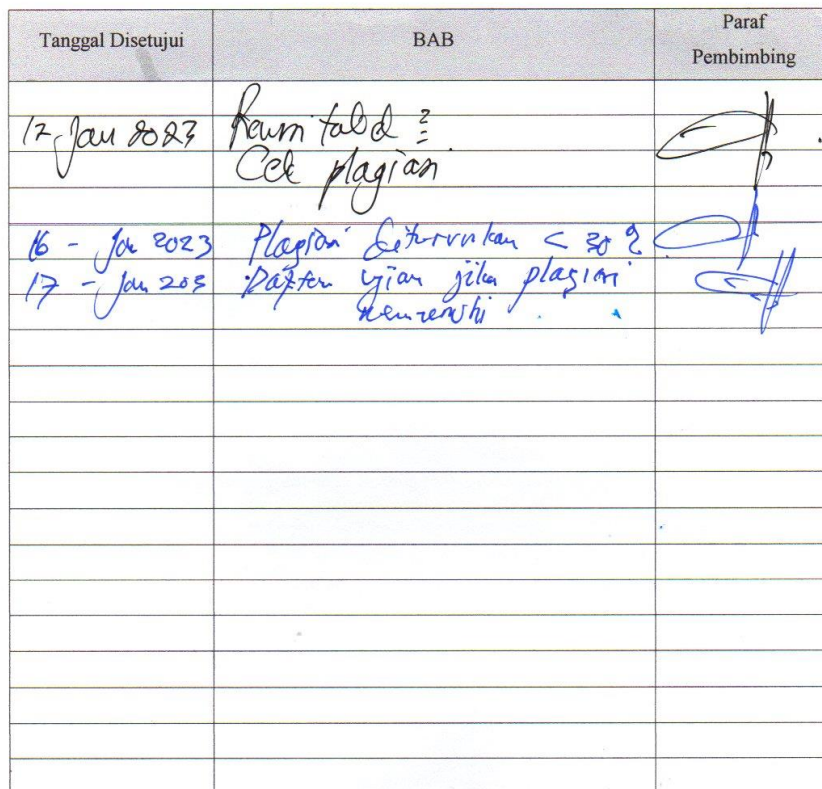 Tanggal Disetujui BAB Paraf
Pembimbing
12 Jan 2023
Cek plagiasi
16 - Jan 2023 Plagiasi diturunkan < 30 %
17 - Jan 203 Daftar ujian jika plagiasi
memenuhi